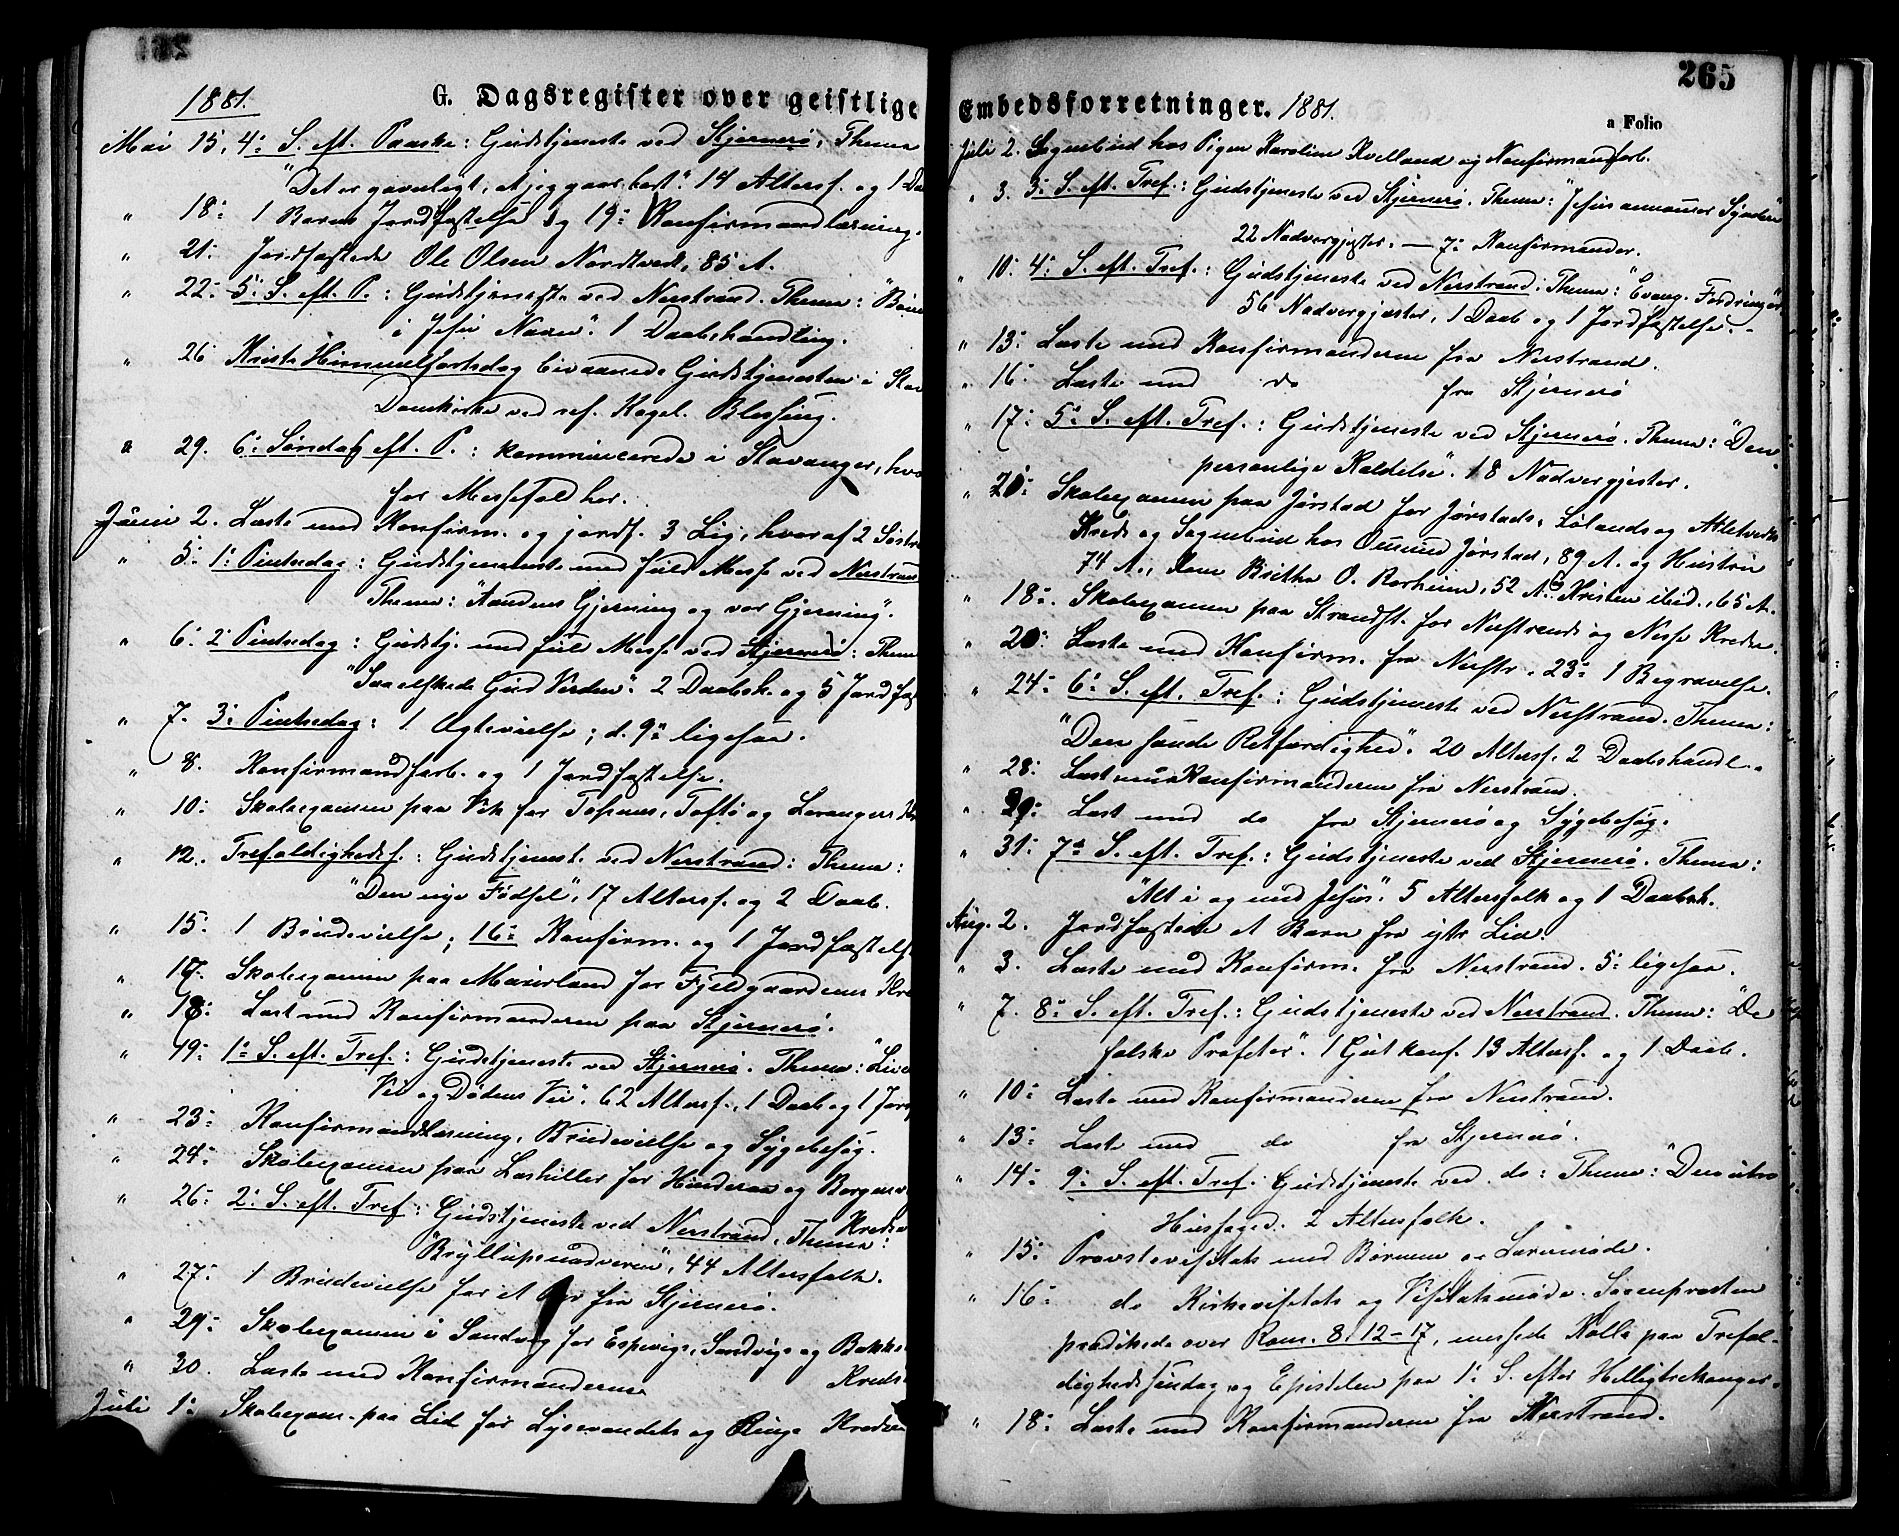 1881.
G. Dagsregister over geistlige
Mai 15, 4: S. eft. Paaske: Gudstjeneste ved Stjernerö, Thema
"Det er gavnligt, at jeg gaar bort". 14 Altersf. og 1 Daa
" 18: 1 Barns Jordfæstelse og 19: Konfirmandlæsning.
" 21: Jordfæstede Ole Olsen Nordtvedt, 85 A.
" 22: 5: S. eft. P.: Gudstjeneste ved Nerstrand. Thema: "Bøn
i Jesu Navn". 1 Daabshandling.
" 26 Kristi Himmelfartsdag bivaanede Gudstjenesten i Stav
Domkirke ved res. Kapel. Blessing.
" 29. 6: Søndag eft. P.: kommunicerede i Stavanger, hvo
for Messefald her.
Juni 2. Læste med Konfirm. og jordf. 3 Lig, hvoraf 2 Søstre
" 5: 1: Pintsedag: Gudstjeneste med fuld Messe ved Nerstrand
Thema: "Aandens Gjerning og vor Gjerning".
" 6: 2 Pintsedag: Gudstj. med fuld Messe ved Stjernerö: Thema
"Saa elskede Gud Verden". 2 Daabsh. og 5 Jordfæst
" 7. 3: Pintsedag: 1 Ægtevielse; d. 9: ligesaa.
" 8. Konfirmandforb. og 1 Jordfæstelse.
" 10: Skoleexamen paa Vik for Tofte og Levanger Kr
" 12. Trefoldighedsf.: Gudstjeneste ved Nerstrand: Thema:
"Den nye Fødsel", 17 Altersf. og 2 Daab.
" 15: 1 Brudevielse; 16: Konfirm. og 1 Jordfæstels
" 17. Skoleexamen paa for Fjeldgaardenes Kre
" 18: Læst med Konfirmanderne paa Stjernerö.
" 19: 1: S. eft. Tref.: Gudstjeneste ved Stjernerö. Thema: "Live
Vei og Dødens Vei". 62 Altersf., 1 Daab og 1 Jord
" 23: Konfirmandlæsning, Brudevielse og Sygebesøg.
" 24: Skoleexamen paa for Hinderaa og Borgen
" 26: 2: S. eft. Tref: Gudstjeneste ved Nerstrand, Thema: Kredse
"Bryllupsnadveren", 44 Altersfolk.
" 27: 1 Brudevielse for et Par fra Stjernerö.
" 29: Skoleexamen i Sandvig for Espevigs, Sandvigs og Bakke
" 30. Læste med Konfirmanderne Kreds
Juli 1: Skoleexam. paa Lid for Lysevandets og Ringe Kredse
265
Embedsforretninger. 1881.
a Folio
Juli 2. Sognebud hos Pigen Karoline Kvelland og Konfirmandforb.
" 3. 3: S. eft. Tref.: Gudstjeneste ved Stjernerö. Thema: "Jesus annammer Syndere"
22 Nadvergjester. — 7: Konfirmander.
" 10: 4: S. eft. Tref.: Gudstjeneste ved Nerstrand: Thema: "Evang. Fordringer"
56 Nadvergjester, 1 Daab og 1 Jordfæstelse.
" 13: Læste med Konfirmanderne fra Nerstrand.
" 16: Læste med do fra Stjernerö
" 17: 5: S. eft. Tref.: Gudstjeneste ved Stjernerö. Thema: "Den
personlige Kaldelse". 18 Nadvergjester.
" 20: Skoleexamen paa Jørstad for Jørstads, Sølands og
Kreds og Sognebud hos Jørstad, 89 A. og Hustru
74 A., Kone Britha O. Rorheim, 52 A. Kristen ibid., 65 A.
" 18: Skoleexamen paa Strandst. for Nerstrands og Kredse.
" 20: Læste med Konfirm. fra Nerstr. 23: 1 Begravelse.
" 24: 6: S. eft. Tref.: Gudstjeneste ved Nerstrand. Thema:
"Den sande Retfærdighed". 20 Altersf. 2 Daabshandl.
" 28: Læst med Konfirmanderne fra Nerstrand.
" 29: Læst med do fra Stjernerö og Sygebesøg.
" 31: 7: S. eft. Tref.: Gudstjeneste ved Stjernerö. Thema:
"Alt i og med Jesus". 5 Altersfolk og 1 Daabsh.
Aug. 2. Jordfæstede et Barn fra ytre Lid.
" 3. Læste med Konfirm. fra Nerstrand. 5: ligesaa.
" 7. 8: S. eft. Tref.: Gudstjeneste ved Nerstrand. Thema: "De
falske Profeter". 13 Altersf. og 1 Daab.
" 10: Læste med Konfirmanderne fra Nerstrand.
" 13: Læste med do fra Stjernerö.
" 14: 9: S. eft. Tref. Gudstjeneste ved do: Thema: "Den utro
Husfoged. 2 Altersfolk.
" 15: Provstevisitats med Børnene og Læremøde.
" 16: do Kirkevisitats og Visitatsmøde. Sognepresten
prædikede over Rom. 8, 12-17, messede Kolla paa Trefol-
dighedssøndag og Epistelen paa 1: S. efter Helligtrekonger.
" 18: Læste med Konfirmanderne fra Nerstrand.